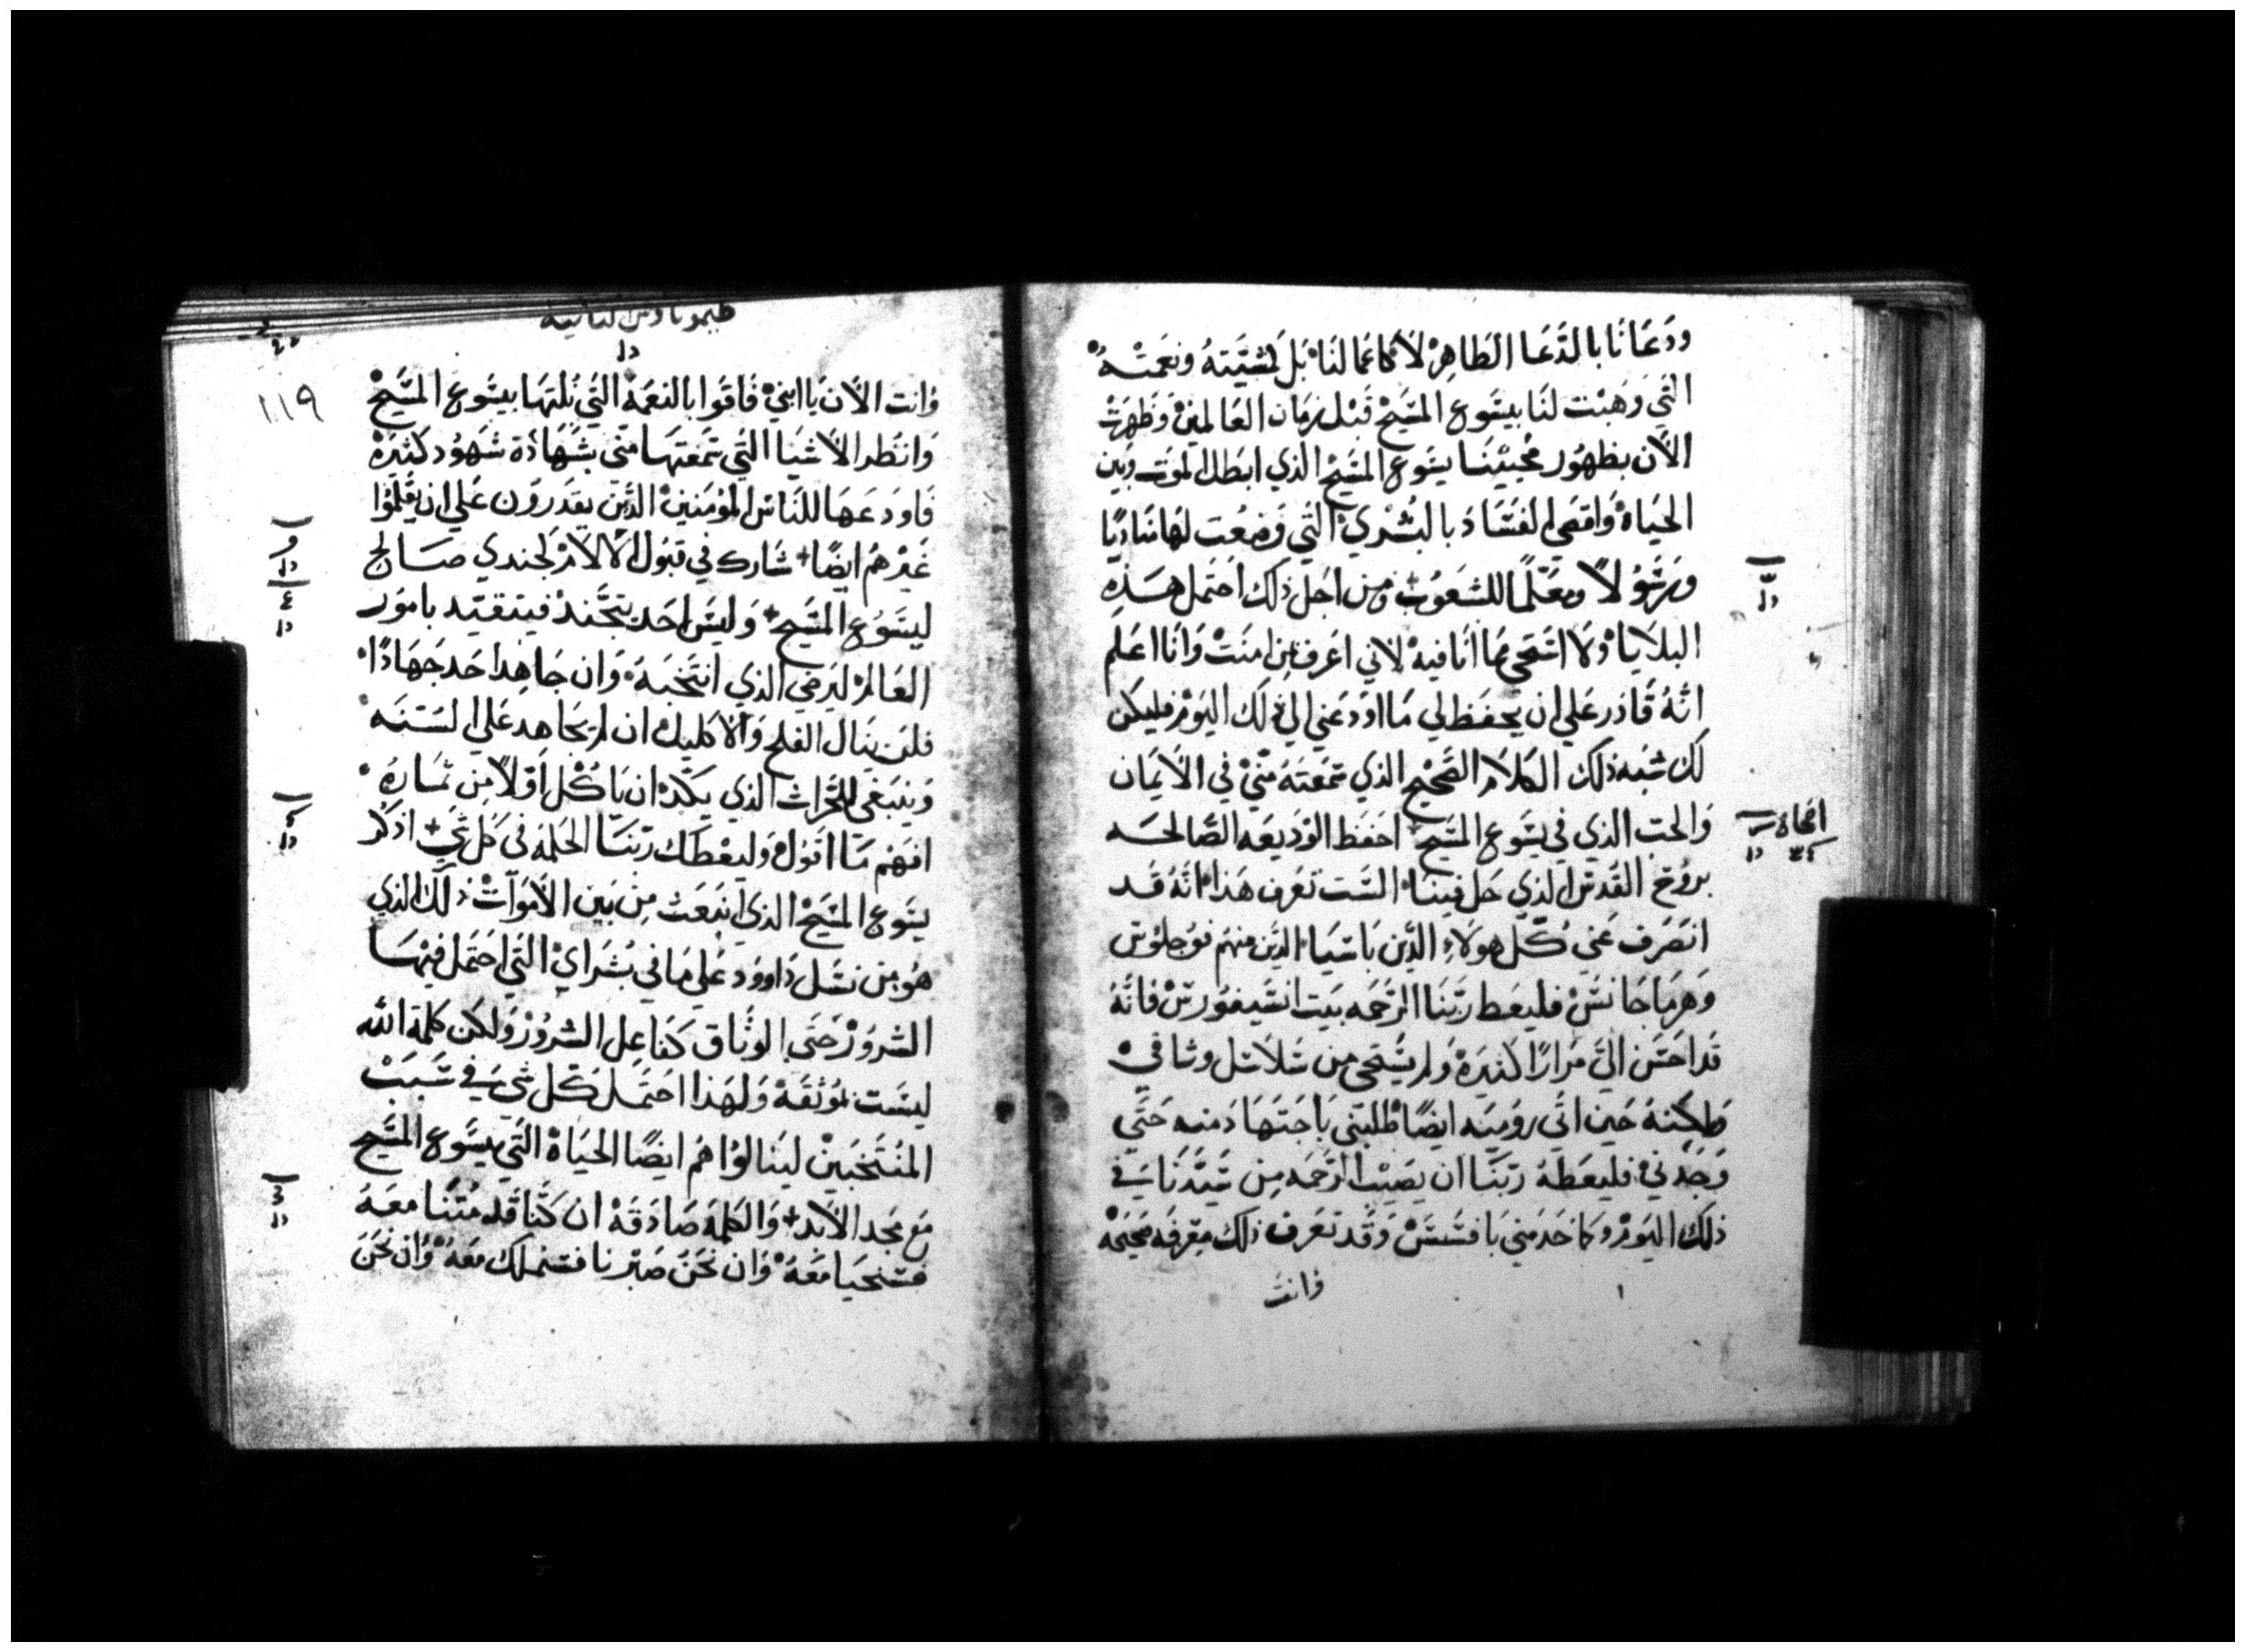 ودعانا بالدعا الطاهر لا كاعمالنا بل كمشيته ونعمته
التي وهبت لنا بيسوع المسيح قبل زمان العالمين وظهرت
الان بظهور محيينا يسوع المسيح الذي ابطل الموت وبين
الحياة واقصى الفساد بالبشرى التي وضعت لها مناديا
ورسولا ومعلما للشعوب ومن اجل ذلك احتمل هذه
البلايا ولا استحي مما انا فيه لاني اعرف بمن امنت وانا اعلم
انه قادر علي ان يحفظ لي ما اودعني الي ذلك اليوم فليكن
لك شبه ذلك الكلام الصحيح الذي سمعته مني في الايمان
والحب الذي في يسوع المسيح احفظ الوديعه الصالحه
بروح القدس الذي حل فينا الست تعرف هذا انه قد
انصرف عني كل هولاء الذين باسيا الذين منهم فوجلوس
وهرماجانس فليعط ربنا الرحمه بيت انسيفورس فانه
قد احسن الي مرارا كثيرة ولم يستحي من سلاسل وثاقي
ولكنه حين اتي روميه ايضا طلبني باجتهاد منه حتى
وجدني فليعطه ربنا ان يصيب الرحمه من سيدنا في
ذلك اليوم وكما خدمني بافسس وقد تعرف ذلك معرفه صحيحه
وانت
طيموتاوس الثانية
١١٩
وانت الان يا ابني فاقوا بالنعمة التي نلتها بيسوع المسيح
وانظر الاشيا التي سمعتها مني بشهادة شهود كثيرة
فاودعها للناس المومنين الذين يقدرون علي ان يعلموا
غيرهم ايضا شارك في قبول الالام كجندي صالح
ليسوع المسيح وليس احد يتجند فيتقيد بامور
العالم ليرضي الذي انتخبه وان جاهد احد جهادا
فلن ينال الفلح والاكليل ان لم يجاهد علي السنه
وينبغي للحراث الذي يكد ان ياكل اولا من ثماره
افهم ما اقول وليعطك ربنا الحكمة في كل شي اذكر
يسوع المسيح الذي انبعث من بين الاموات ذلك الذي
هو من نسل داوود علي ما في بشراي التي احتمل فيها
الشرور حتي الوثاق كفاعل الشرور ولكن كلمة الله
ليست موثقة ولهذا احتمل كل شي في سبب
المنتخبين لينالوا هم ايضا الحياة التي بيسوع المسيح
مع مجد الابد والكلمة صادقة ان كنا قد متنا معه
فسنحيا معه وان نحن صبرنا فسنملك معه وان نحن